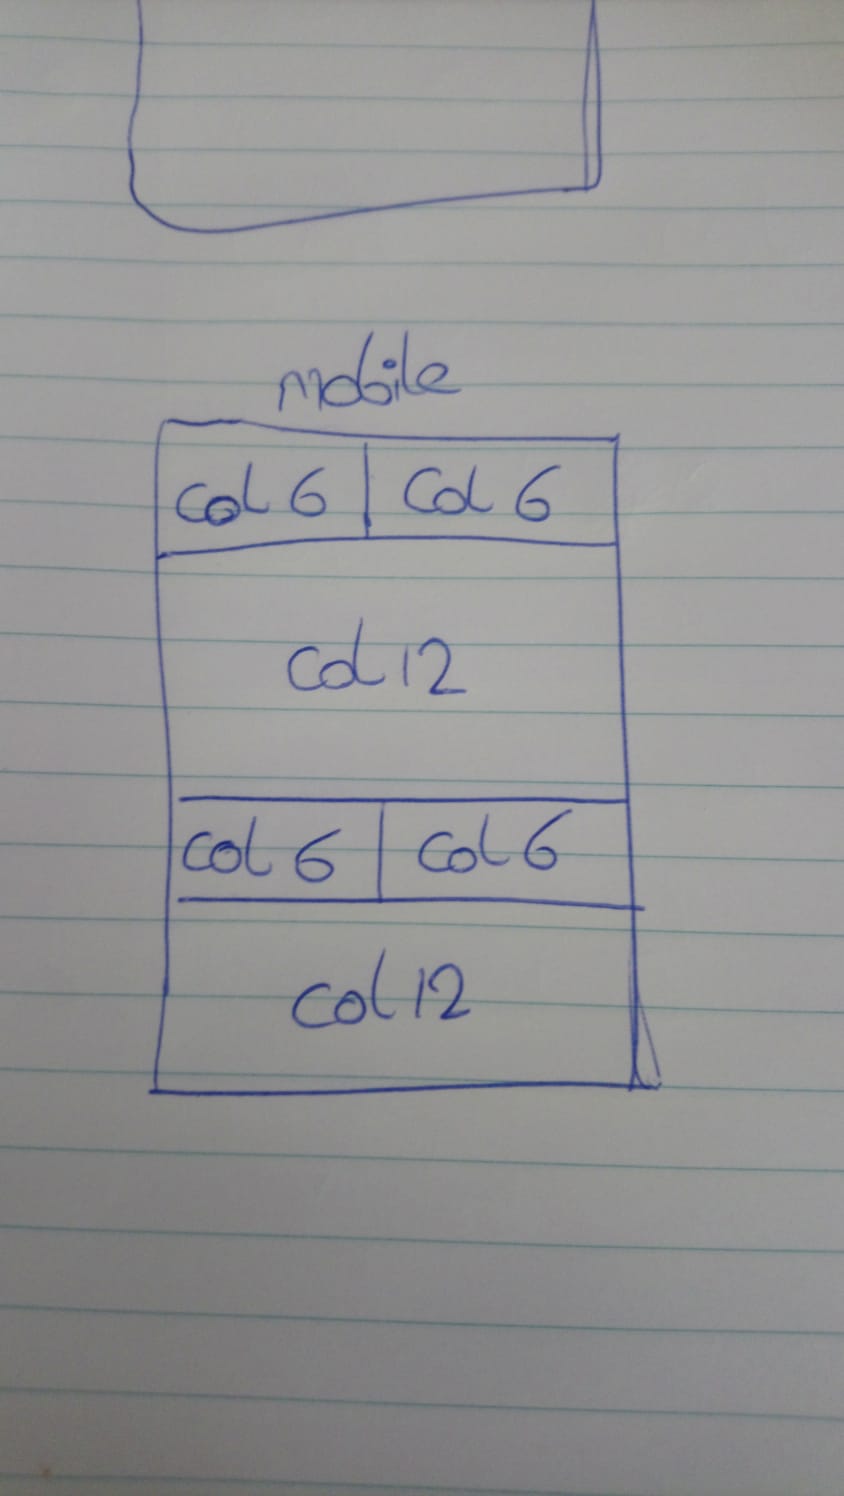 mobile
Col 6 Col 6
Col 12
Col 6 Col 6
Col 12